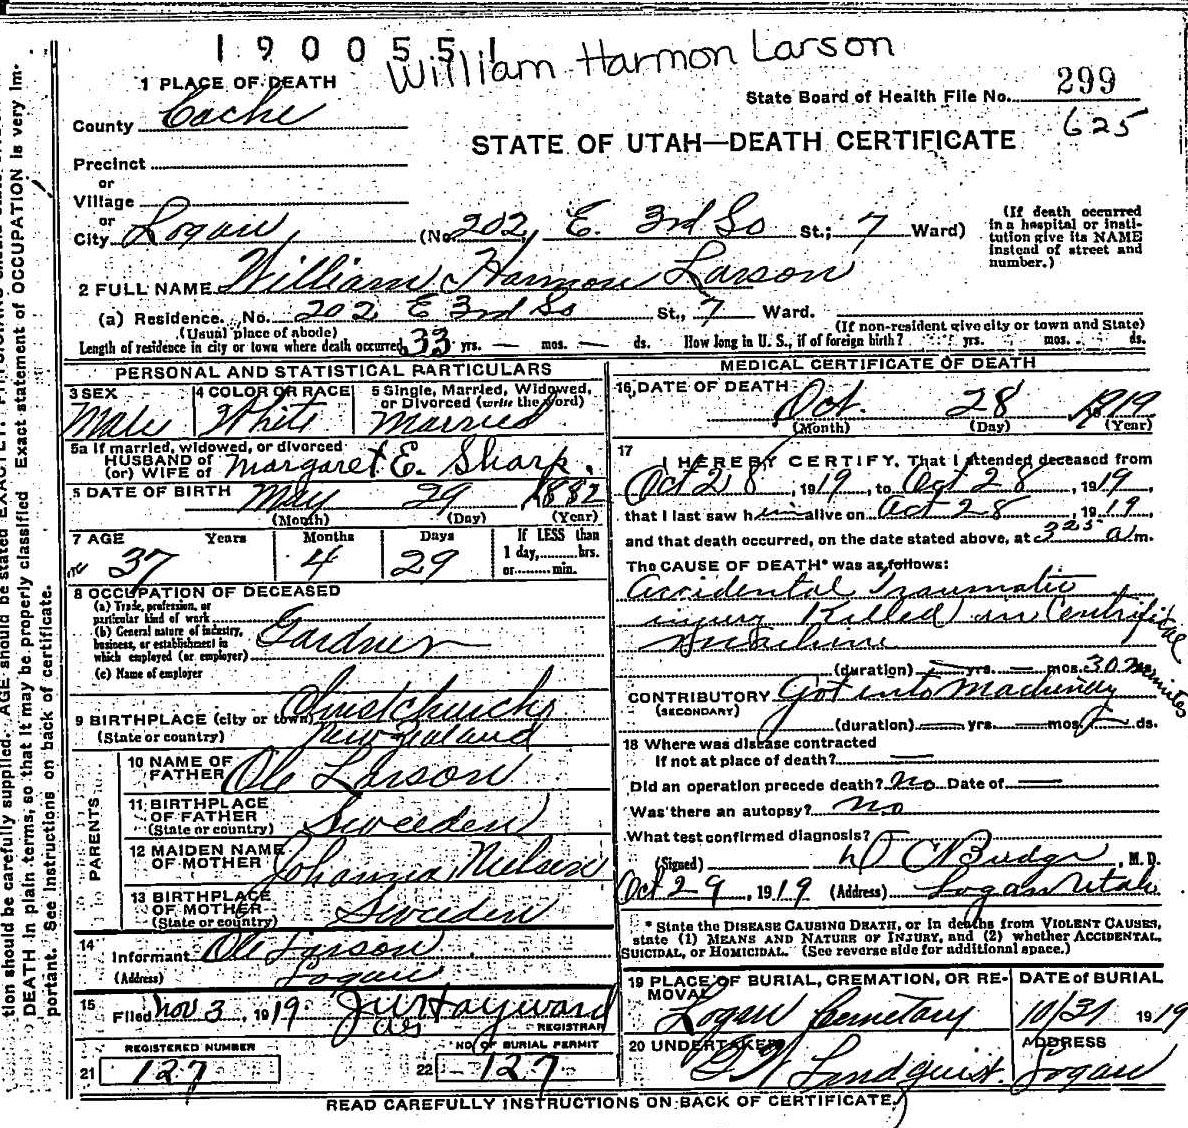 1900551
William Harmon Larson
1 PLACE OF DEATH
State Board of Health File No. 299
County Cache
625
STATE OF UTAH—DEATH CERTIFICATE
Precinct
or
Village
or
City Logan (No. 202 E. 3rd So St.; 7 Ward)
(If death occurred in a hospital or institution give its NAME instead of street and number.)
2 FULL NAME William Harmon Larson
(a) Residence. No. 202 E 3rd So St., 7 Ward.
(Usual place of abode) (If non-resident give city or town and State)
Length of residence in city or town where death occurred 33 yrs. — mos. — ds. How long in U. S., if of foreign birth? yrs. mos. ds.
PERSONAL AND STATISTICAL PARTICULARS
3 SEX Male
4 COLOR OR RACE White
5 Single, Married, Widowed, or Divorced (write the word) Married
5a If married, widowed, or divorced
HUSBAND of
(or) WIFE of Margaret E. Sharp.
DATE OF BIRTH May 29 1882
(Month) (Day) (Year)
7 AGE Years Months Days If LESS than
37 4 29 1 day, hrs.
or min.
8 OCCUPATION OF DECEASED
(a) Trade, profession, or particular kind of work
(b) General nature of industry, business, or establishment in which employed (or employer) Gardner
(c) Name of employer
9 BIRTHPLACE (city or town) Christchurch
(State or country) New Zealand
PARENTS
10 NAME OF FATHER Ole Larson
11 BIRTHPLACE OF FATHER
(State or country) Sweeden
12 MAIDEN NAME OF MOTHER Johanna Nielson
13 BIRTHPLACE OF MOTHER
(State or country) Sweden
14
Informant Ole Larson
(Address) Logan
15
Filed Nov 3, 1919 J W Hayward
REGISTRAR
REGISTERED NUMBER
21 127
NO. OF BURIAL PERMIT
22 127
MEDICAL CERTIFICATE OF DEATH
16 DATE OF DEATH Oct. 28 1919
(Month) (Day) (Year)
17
I HEREBY CERTIFY, That I attended deceased from
Oct 28, 1919, to Oct 28, 1919,
that I last saw him alive on Oct 28, 1919,
and that death occurred, on the date stated above, at 325 a.m.
The CAUSE OF DEATH* was as follows:
Accidental Traumatic
injury Killed in Centrifical
Machine
(duration) — yrs. — mos. 30 minutes
CONTRIBUTORY Got into Machinery
(SECONDARY)
(duration) — yrs. — mos. — ds.
18 Where was disease contracted
If not at place of death? —
Did an operation precede death? No Date of —
Was there an autopsy? no
What test confirmed diagnosis?
(Signed) Budge, M. D.
Oct 29, 1919 (Address) Logan Utah
* State the DISEASE CAUSING DEATH, or in deaths from VIOLENT CAUSES,
state (1) MEANS AND NATURE OF INJURY, and (2) whether ACCIDENTAL,
SUICIDAL, or HOMICIDAL. (See reverse side for additional space.)
19 PLACE OF BURIAL, CREMATION, OR REMOVAL
Logan Cemetary
DATE of BURIAL
10/31 1919
20 UNDERTAKER
Lindquist.
ADDRESS
Logan
READ CAREFULLY INSTRUCTIONS ON BACK OF CERTIFICATE.
tion should be carefully supplied. AGE should be stated EXACTLY.
DEATH in plain terms, so that it may be properly classified. Exact statement of OCCUPATION is very im-
portant. See Instructions on back of certificate.